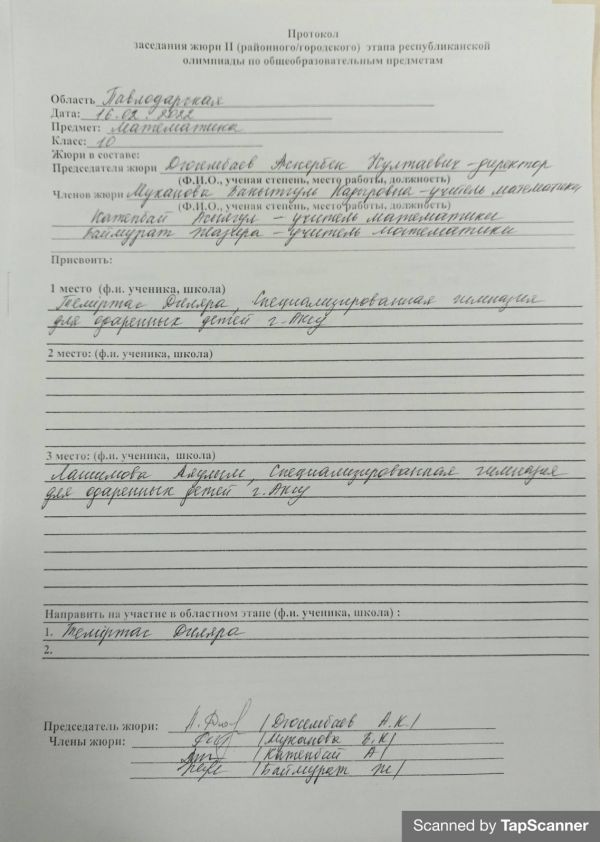 Протокол
заседания жюри II (районного/городского) этапа республиканской
олимпиады по общеобразовательным предметам
Область Павлодарская
Дата: 16.02.2022
Предмет: Математика
Класс: 10
Жюри в составе:
Председателя жюри Дюсембаев Аскербек Култаевич - директор
(Ф.И.О., ученая степень, место работы, должность)
Членов жюри Муканова Бакытгуль Кадыровна - учитель математики
(Ф.И.О., ученая степень, место работы, должность)
Катепбай - учитель математики
Баймурат - учитель математики
Присвоить:
1 место (ф.и. ученика, школа)
Теміртас Диляра, Специализированная гимназия
для одаренных детей г. Аксу
2 место: (ф.и. ученика, школа)
3 место: (ф.и. ученика, школа)
Лашимова Аяулым, Специализированная гимназия
для одаренных детей г. Аксу
Направить на участие в областном этапе (ф.и. ученика, школа) :
1. Теміртас Диляра
2.
Председатель жюри: /Дюсембаев А.К./
Члены жюри: /Муканова Б.К/
/Катепбай А/
/Баймурат Ж/
Scanned by TapScanner